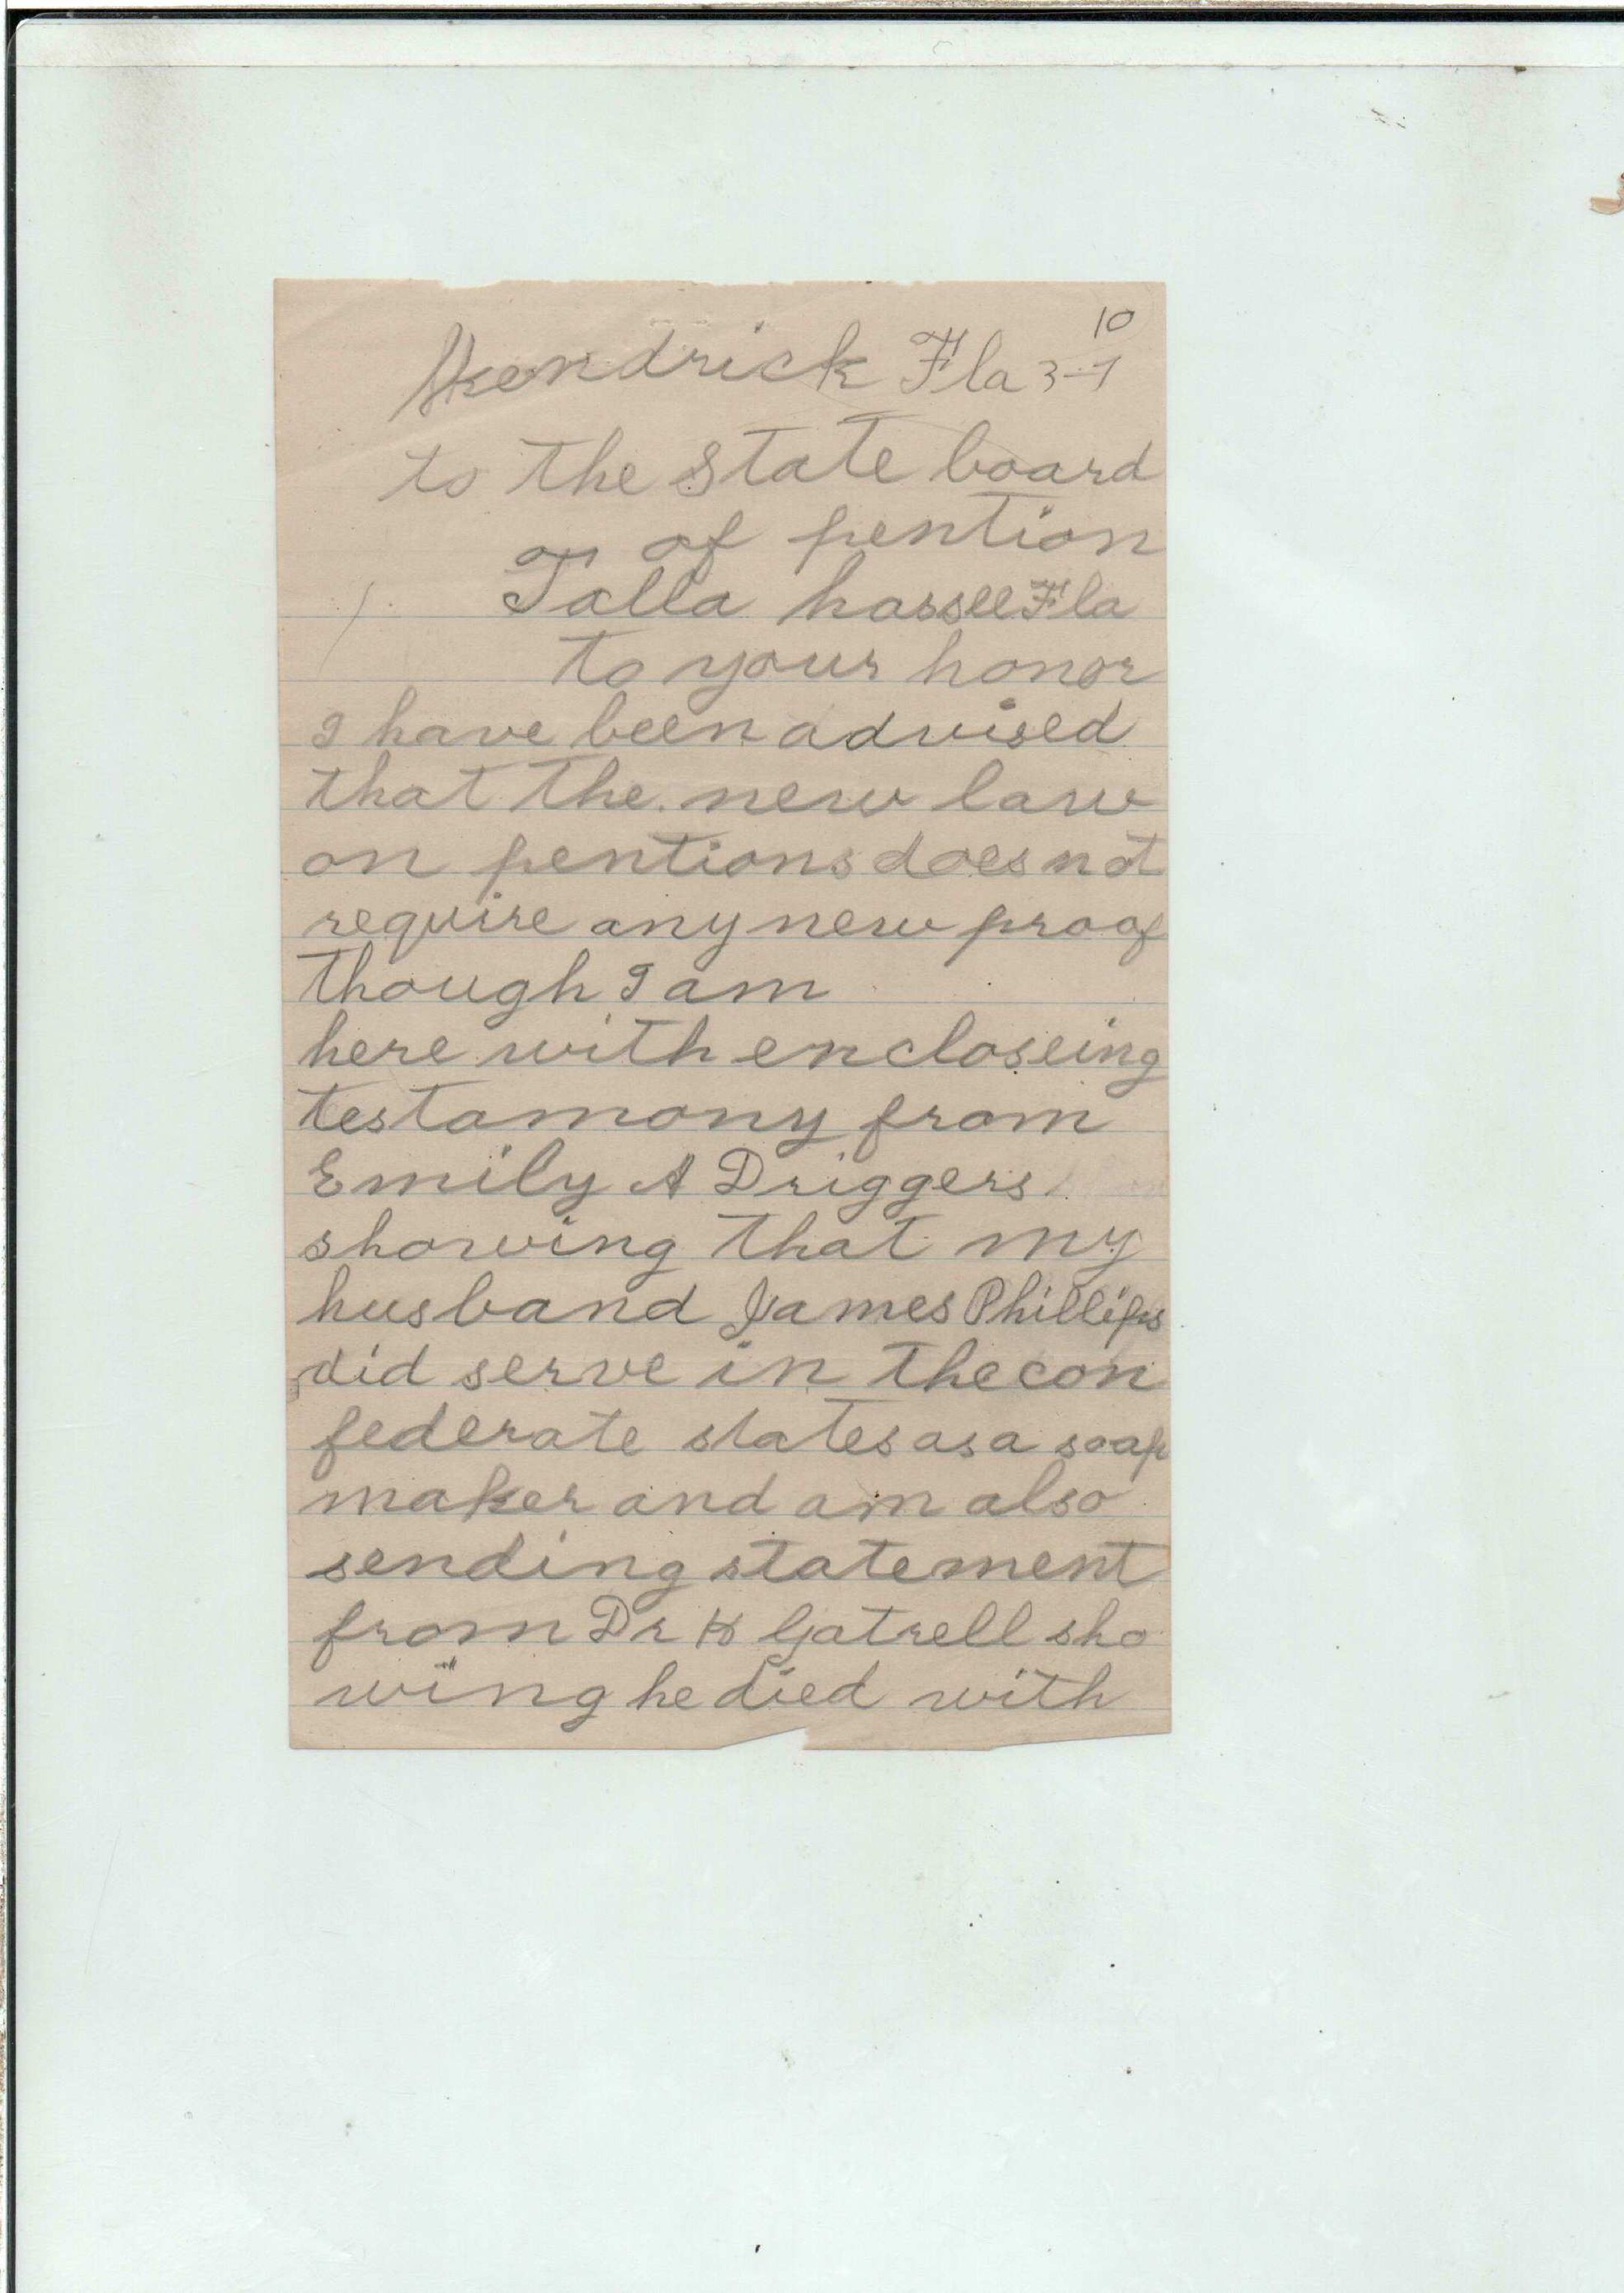 10
Kendrick Fla 3-1
to the State board
on of pention
Talla hassee Fla
to your honor
I have been advised
that the new law
on pentions does not
require any new proof
though I am
here with encloseing
testamony from
Emily A Driggers
showing that my
husband James Phillips
did serve in the con
federate states as a soap
maker and am also
sending statement
from Dr H Gatrell sho
wing he died with